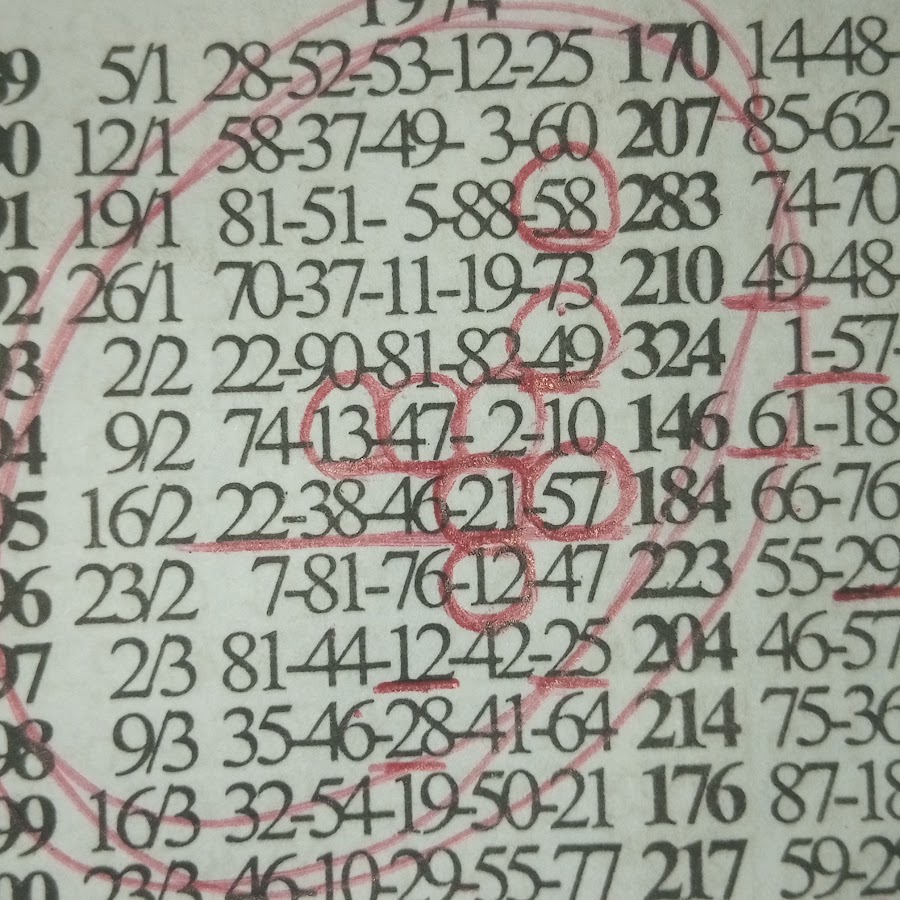 1974
89 5/1 28-52-53-12-25 170 14-48-
90 12/1 58-37-49- 3-60 207 85-62-
91 19/1 81-51- 5-88-58 283 74-70
92 26/1 70-37-11-19-73 210 49-48-
93 2/2 22-90-81-82-49 324 1-57-
94 9/2 74-13-47- 2-10 146 61-18
95 16/2 22-38-46-21-57 184 66-76
96 23/2 7-81-76-12-47 223 55-29
97 2/3 81-44-12-42-25 204 46-57
98 9/3 35-46-28-41-64 214 75-36
99 16/3 32-54-19-50-21 176 87-18
23/3 46-10-29-55-77 217 59-